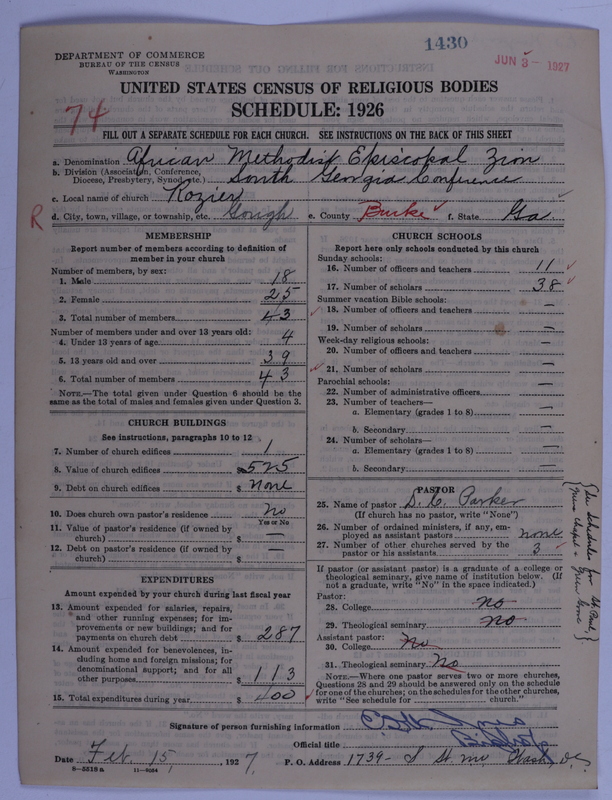 1430
JUN 3 - 1927
DEPARTMENT OF COMMERCE
BUREAU OF THE CENSUS
WASHINGTON
UNITED STATES CENSUS OF RELIGIOUS BODIES
SCHEDULE: 1926
74
FILL OUT A SEPARATE SCHEDULE FOR EACH CHURCH. SEE INSTRUCTIONS ON THE BACK OF THIS SHEET
a. Denomination African Methodist Episcopal Zion
b. Division (Association, Conference, Diocese, Presbytery, Synod, etc.) South Georgia Conference
c. Local name of church Rozier
R d. City, town, village, or township, etc. Gough e. County Burke f. State Ga
MEMBERSHIP
Report number of members according to definition of
member in your church
Number of members, by sex:
1. Male 18
2. Female 25
3. Total number of members 43
Number of members under and over 13 years old:
4. Under 13 years of age 4
5. 13 years old and over 39
6. Total number of members 43
NOTE.—The total given under Question 6 should be
same as the total of males and females given under Question 3.
CHURCH BUILDINGS
See instructions, paragraphs 10 to 12
7. Number of church edifices 1
8. Value of church edifices $525
9. Debt on church edifices $ none
10. Does church own pastor's residence? no
Yes or No
11. Value of pastor's residence (if owned by
church) $ —
12. Debt on pastor's residence (if owned by
church) $ —
EXPENDITURES
Amount expended by your church during last fiscal year
13. Amount expended for salaries, repairs,
and other running expenses; for im-
provements or new buildings; and for
payments on church debt $ 287
14. Amount expended for benevolences, in-
cluding home and foreign missions; for
denominational support; and for all
other purposes $ 113
15. Total expenditures during year $ 400
CHURCH SCHOOLS
Report here only schools conducted by this church
Sunday schools:
16. Number of officers and teachers 11
17. Number of scholars 38
Summer vacation Bible schools:
18. Number of officers and teachers —
19. Number of scholars —
Week-day religious schools:
20. Number of officers and teachers —
21. Number of scholars —
Parochial schools:
22. Number of administrative officers —
23. Number of teachers—
a. Elementary (grades 1 to 8) —
b. Secondary —
24. Number of scholars—
a. Elementary (grades 1 to 8) —
b. Secondary —
PASTOR
25. Name of pastor Parker
(If church has no pastor, write "None")
26. Number of ordained ministers, if any, em-
ployed as assistant pastors none
27. Number of other churches served by the
pastor or his assistants 3
If pastor (or assistant pastor) is a graduate of a college or
theological seminary, give name of institution below. (If
not a graduate, write "No" in the space indicated.)
Pastor:
28. College No
29. Theological seminary No
Assistant pastor:
30. College No
31. Theological seminary No
NOTE.—Where one pastor serves two or more churches,
Questions 28 and 29 should be answered only on the schedule
for one of the churches; on the schedules for the other churches,
write "See schedule for church."
See Schedules for St. Paul,
Chapel & Green Grove
Signature of person furnishing information
Official title Bishop
Date Feb. 15, 1927. P. O. Address 1739- S St. NW Wash, D.C.
8—5519 a 11—9064